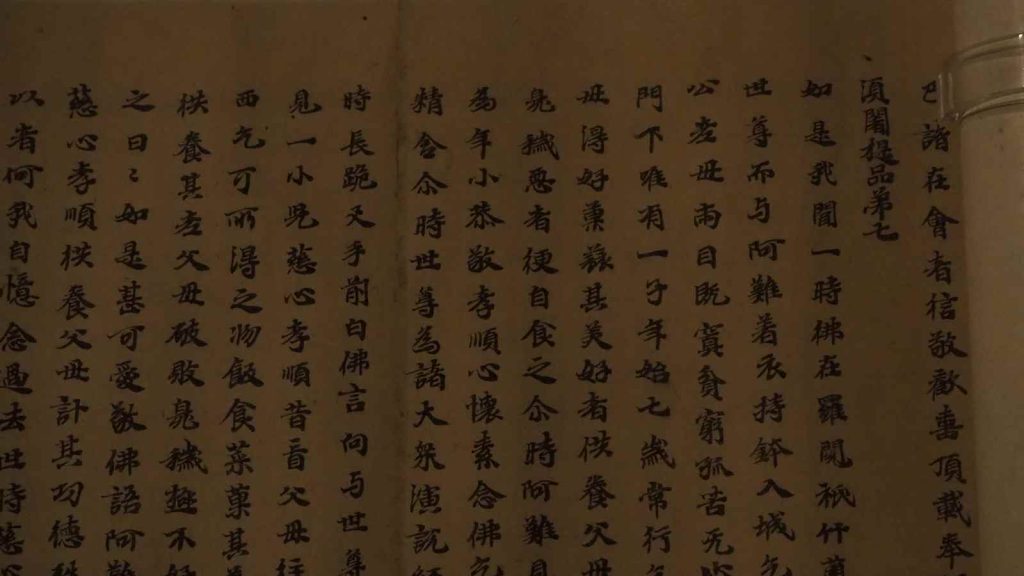 已諸在會者信敬歡憙頂載奉
須闍提品苐七
如是我聞一時佛在羅閱祇竹薗
世尊而与阿難著衣持鉢入城乞
公老母兩目既冥貧窮孤苦无
門下唯有一子年始七歲常行乞
母得好菓蓏其美好者供養父母
臭穢惡者便自食之尒時阿難見
為年小恭敬孝順心懷素念佛乞
精舍尒時世尊為諸大衆演說經
時長跪叉手前白佛言向与世尊
見一小兒慈心孝順昔盲父母住
西乞可所得之物飯食菜菓其美
供養其老父母破敗臭穢極不好
之日〻如是甚可愛敬佛語阿難
慈心孝順供養父母計其功德
以者何我自憶念過去世時慈心